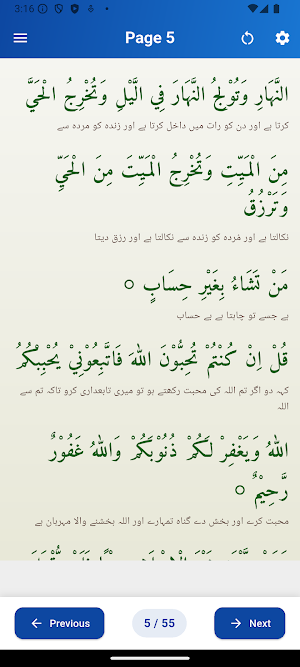 3:16
Page 5
النَّهَارِ وَتُوْلِجُ النَّهَارَ فِي الَّيْلِ وَتُخْرِجُ الْحَيَّ
کرتا ہے اور دن کو رات میں داخل کرتا ہے اور زندہ کو مردہ سے
مِنَ الْمَيِّتِ وَتُخْرِجُ الْمَيِّتَ مِنَ الْحَيِّ
وَتَرْزُقُ
نکالتا ہے اور مُردہ کو زندہ سے نکالتا ہے اور رزق دیتا
مَنْ تَشَاءُ بِغَيْرِ حِسَابٍ ○
ہے جسے تو چاہتا ہے بے حساب
قُلْ اِنْ كُنْتُمْ تُحِبُّوْنَ اللّٰهَ فَاتَّبِعُوْنِيْ يُحْبِبْكُمُ
کہہ دو اگر تم اللہ کی محبت رکھتے ہو تو میری تابعداری کرو تاکہ تم سے
اللہ
اللّٰهُ وَيَغْفِرْ لَكُمْ ذُنُوْبَكُمْ وَاللّٰهُ غَفُوْرٌ
رَّحِيْمٌ ○
محبت کرے اور بخش دے گناہ تمہارے اور اللہ بخشنے والا مہربان ہے
Previous
5 / 55
Next